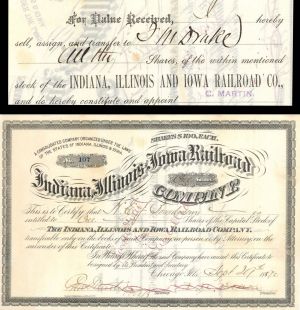 For Value Received, hereby
sell, assign, and transfer to
Shares, of the within mentioned
stock of the INDIANA, ILLINOIS AND IOWA RAILROAD CO.,
C. MARTIN.
and do hereby constitute and appoint
SHARES $100, EACH.
A CONSOLIDATED COMPANY ORGANIZED UNDER THE LAWS
OF THE STATES OF INDIANA, ILLINOIS & IOWA
107
Indiana, Illinois & Iowa Railroad
COMPANY
This is to Certify that
entitled to Shares of the Capital Stock of
THE INDIANA, ILLINOIS AND IOWA RAILROAD COMPANY,
transferable only on the books of said Company in person or by Attorney on the
surrender of this Certificate.
In Witness Whereof the said Company have caused this Certificate to
be signed by its President and Secretary
Chicago Ills. Sept